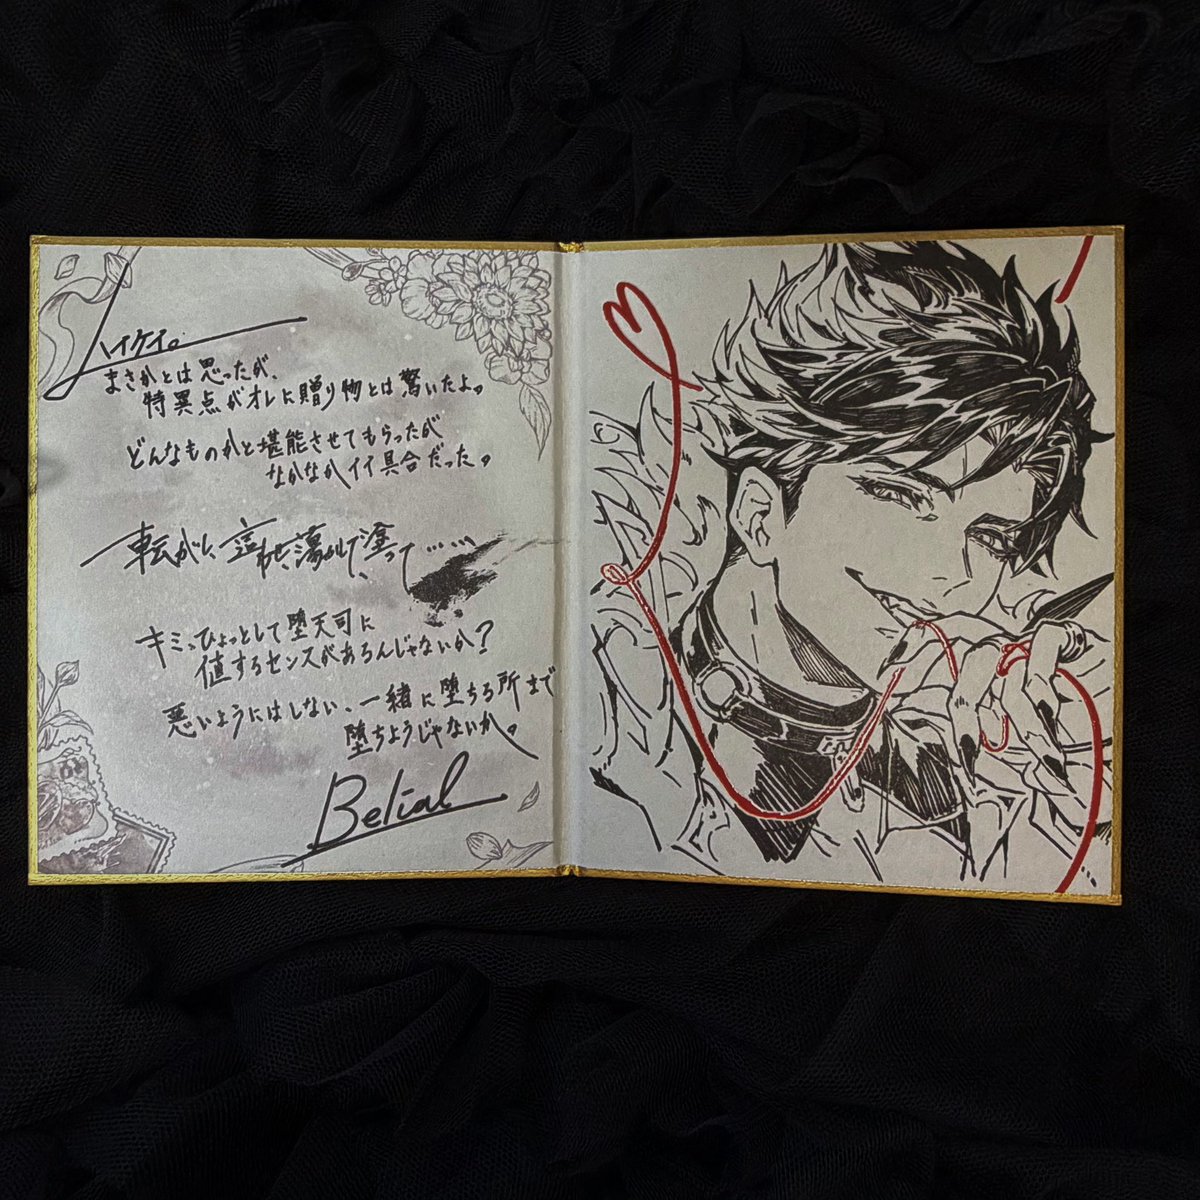 ハイケイ。
まさかとは思ったが、
特異点がオレに贈り物とは驚いたよ。
どんなものかと堪能させてもらったが
なかなかイイ具合だった。
転がし、這わせ、蕩かして、塗って……
キミ、ひょっとして堕天司に
値するセンスがあるんじゃないか？
悪いようにはしない、一緒に堕ちる所まで
堕ちようじゃないか。
Belial